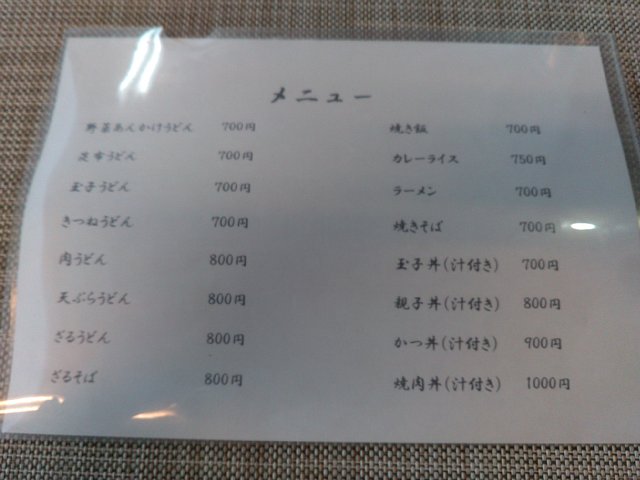 メニュー
野菜あんかけうどん 700円
昆布うどん 700円
玉子うどん 700円
きつねうどん 700円
肉うどん 800円
天ぷらうどん 800円
ざるうどん 800円
ざるそば 800円
焼き飯 700円
カレーライス 750円
ラーメン 700円
焼きそば 700円
玉子丼(汁付き) 700円
親子丼(汁付き) 800円
かつ丼(汁付き) 900円
焼肉丼(汁付き) 1000円